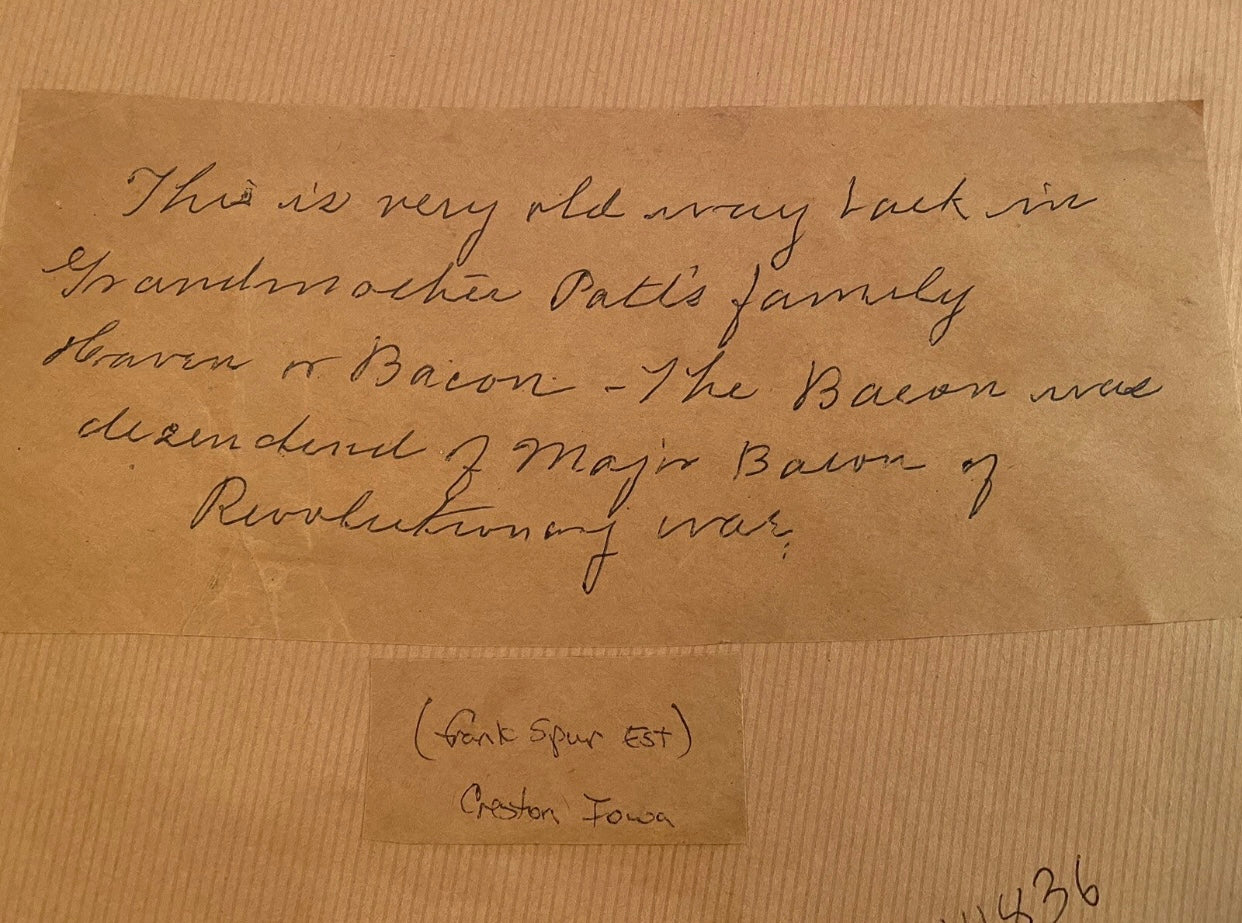 This is very old way back in
Grandmother Patt's family
Haven or Bacon - The Bacon was
dezendend of Major Bacon of
Revolutionary war.
(frank Spur Est)
Creston, Iowa
836